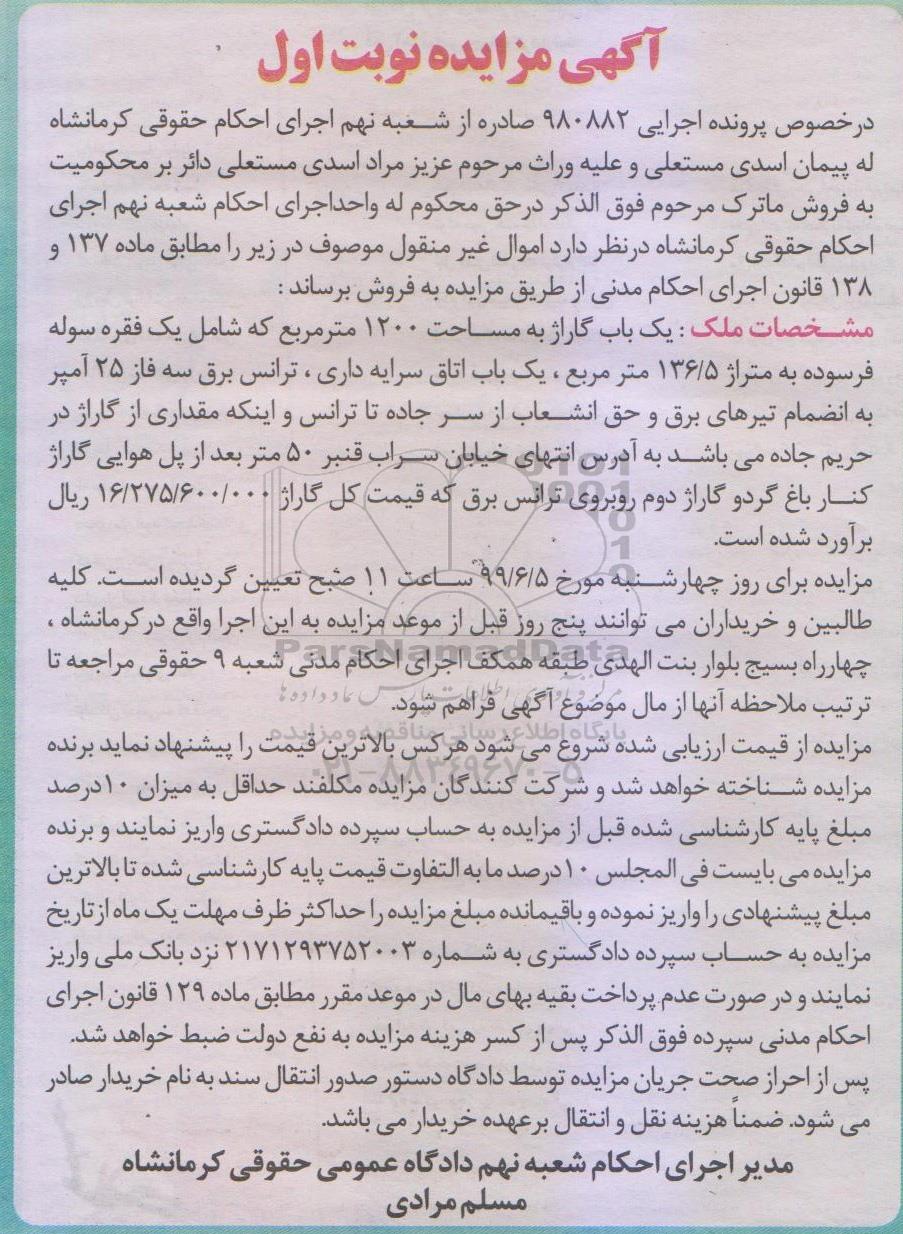 آگهی مزایده نوبت اول
درخصوص پرونده اجرایی ۹۸۰۸۸۲ صادره از شعبه نهم اجرای احکام حقوقی کرمانشاه
له پیمان اسدی مستعلی و علیه وراث مرحوم عزیز مراد اسدی مستعلی دائر بر محکومیت
به فروش ماترک مرحوم فوق الذکر درحق محکوم له واحداجرای احکام شعبه نهم اجرای
احکام حقوقی کرمانشاه درنظر دارد اموال غیر منقول موصوف در زیر را مطابق ماده ۱۳۷ و
۱۳۸ قانون اجرای احکام مدنی از طریق مزایده به فروش برساند :
مشخصات ملک : یک باب گاراژ به مساحت ۱۲۰۰ مترمربع که شامل یک فقره سوله
فرسوده به متراژ ۱۳۶/۵ متر مربع ، یک باب اتاق سرایه داری ، ترانس برق سه فاز ۲۵ آمپر
به انضمام تیرهای برق و حق انشعاب از سر جاده تا ترانس و اینکه مقداری از گاراژ در
حریم جاده می باشد به آدرس انتهای خیابان سراب قنبر ۵۰ متر بعد از پل هوایی گاراژ
کنار باغ گردو گاراژ دوم روبروی ترانس برق که قیمت کل گاراژ ۱۶/۲۷۵/۶۰۰/۰۰۰ ریال
برآورد شده است.
مزایده برای روز چهارشنبه مورخ ۹۹/۶/۵ ساعت ۱۱ صبح تعیین گردیده است. کلیه
طالبین و خریداران می توانند پنج روز قبل از موعد مزایده به این اجرا واقع درکرمانشاه ،
چهارراه بسیج بلوار بنت الهدی طبقه همکف اجرای احکام مدنی شعبه ۹ حقوقی مراجعه تا
ترتیب ملاحظه آنها از مال موضوع آگهی فراهم شود.
مزایده از قیمت ارزیابی شده شروع می شود هرکس بالاترین قیمت را پیشنهاد نماید برنده
مزایده شناخته خواهد شد و شرکت کنندگان مزایده مکلفند حداقل به میزان ۱۰درصد
مبلغ پایه کارشناسی شده قبل از مزایده به حساب سپرده دادگستری واریز نمایند و برنده
مزایده می بایست فی المجلس ۱۰درصد مابه التفاوت قیمت پایه کارشناسی شده تا بالاترین
مبلغ پیشنهادی را واریز نموده و باقیمانده مبلغ مزایده را حداکثر ظرف مهلت یک ماه ازتاریخ
مزایده به حساب سپرده دادگستری به شماره ۲۱۷۱۲۹۳۷۵۲۰۰۳ نزد بانک ملی واریز
نمایند و در صورت عدم پرداخت بقیه بهای مال در موعد مقرر مطابق ماده ۱۲۹ قانون اجرای
احکام مدنی سپرده فوق الذکر پس از کسر هزینه مزایده به نفع دولت ضبط خواهد شد.
پس از احراز صحت جریان مزایده توسط دادگاه دستور صدور انتقال سند به نام خریدار صادر
می شود. ضمناً هزینه نقل و انتقال برعهده خریدار می باشد.
مدیر اجرای احکام شعبه نهم دادگاه عمومی حقوقی کرمانشاه
مسلم مرادی
ParsNamadData
پایگاه اطلاع رسانی مناقصه و مزایده
۰۲۱-۸۸۳۴۹۶۷۰-۵